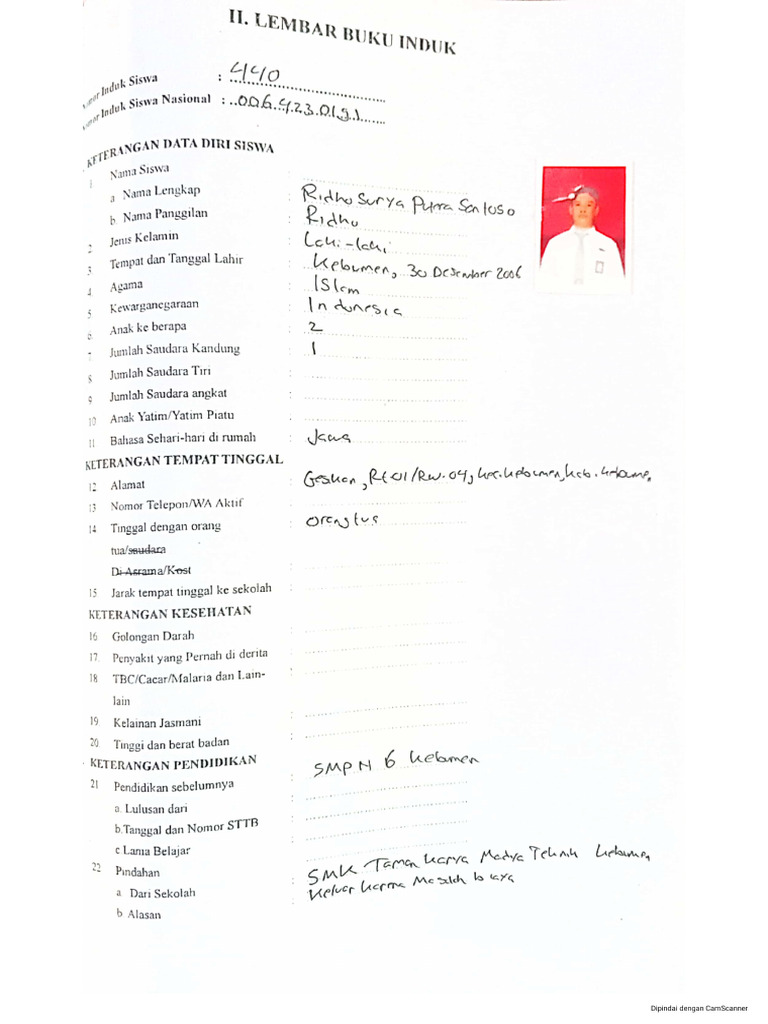 II. LEMBAR BUKU INDUK
Nomor Induk Siswa : 440
Nomor Induk Siswa Nasional : 0064230191
KETERANGAN DATA DIRI SISWA
1 Nama Siswa
a Nama Lengkap : Ridho Surya Putra Santoso
b. Nama Panggilan : Ridho
2 Jenis Kelamin : Laki-laki
3. Tempat dan Tanggal Lahir : Kebumen, 30 Desember 2006
4 Agama : Islam
5 Kewarganegaraan : Indonesia
6 Anak ke berapa : 2
7 Jumlah Saudara Kandung : 1
8 Jumlah Saudara Tiri :
9 Jumlah Saudara angkat :
10 Anak Yatim/Yatim Piatu :
11 Bahasa Sehari-hari di rumah : Jawa
KETERANGAN TEMPAT TINGGAL
12 Alamat : Rt 01/Rw.04, kec.kebumen, kab.kebumen
13 Nomor Telepon/WA Aktif :
14 Tinggal dengan orang : orangtua
tua/saudara
Di Asrama/Kost :
15 Jarak tempat tinggal ke sekolah :
KETERANGAN KESEHATAN
16 Golongan Darah :
17. Penyakit yang Pernah di derita :
18 TBC/Cacar/Malaria dan Lain-
lain
19. Kelainan Jasmani :
20. Tinggi dan berat badan :
KETERANGAN PENDIDIKAN
21 Pendidikan sebelumnya : SMP N 6 Kebumen
a. Lulusan dari :
b.Tanggal dan Nomor STTB :
c Lama Belajar :
22 Pindahan
a. Dari Sekolah : SMK Taman Karya Madya Teknik Kebumen
b Alasan : Keluar karna Masalah biaya
Dipindai dengan CamScanner